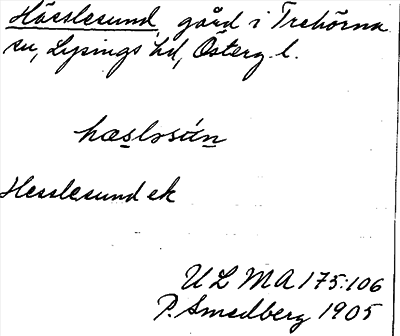 Hässlesund, gård i Trehörna
sn, Lysings hd, Österg. l.
hæslosún
Hesslesund ek
ULMA 175:106
P. Smedberg 1905